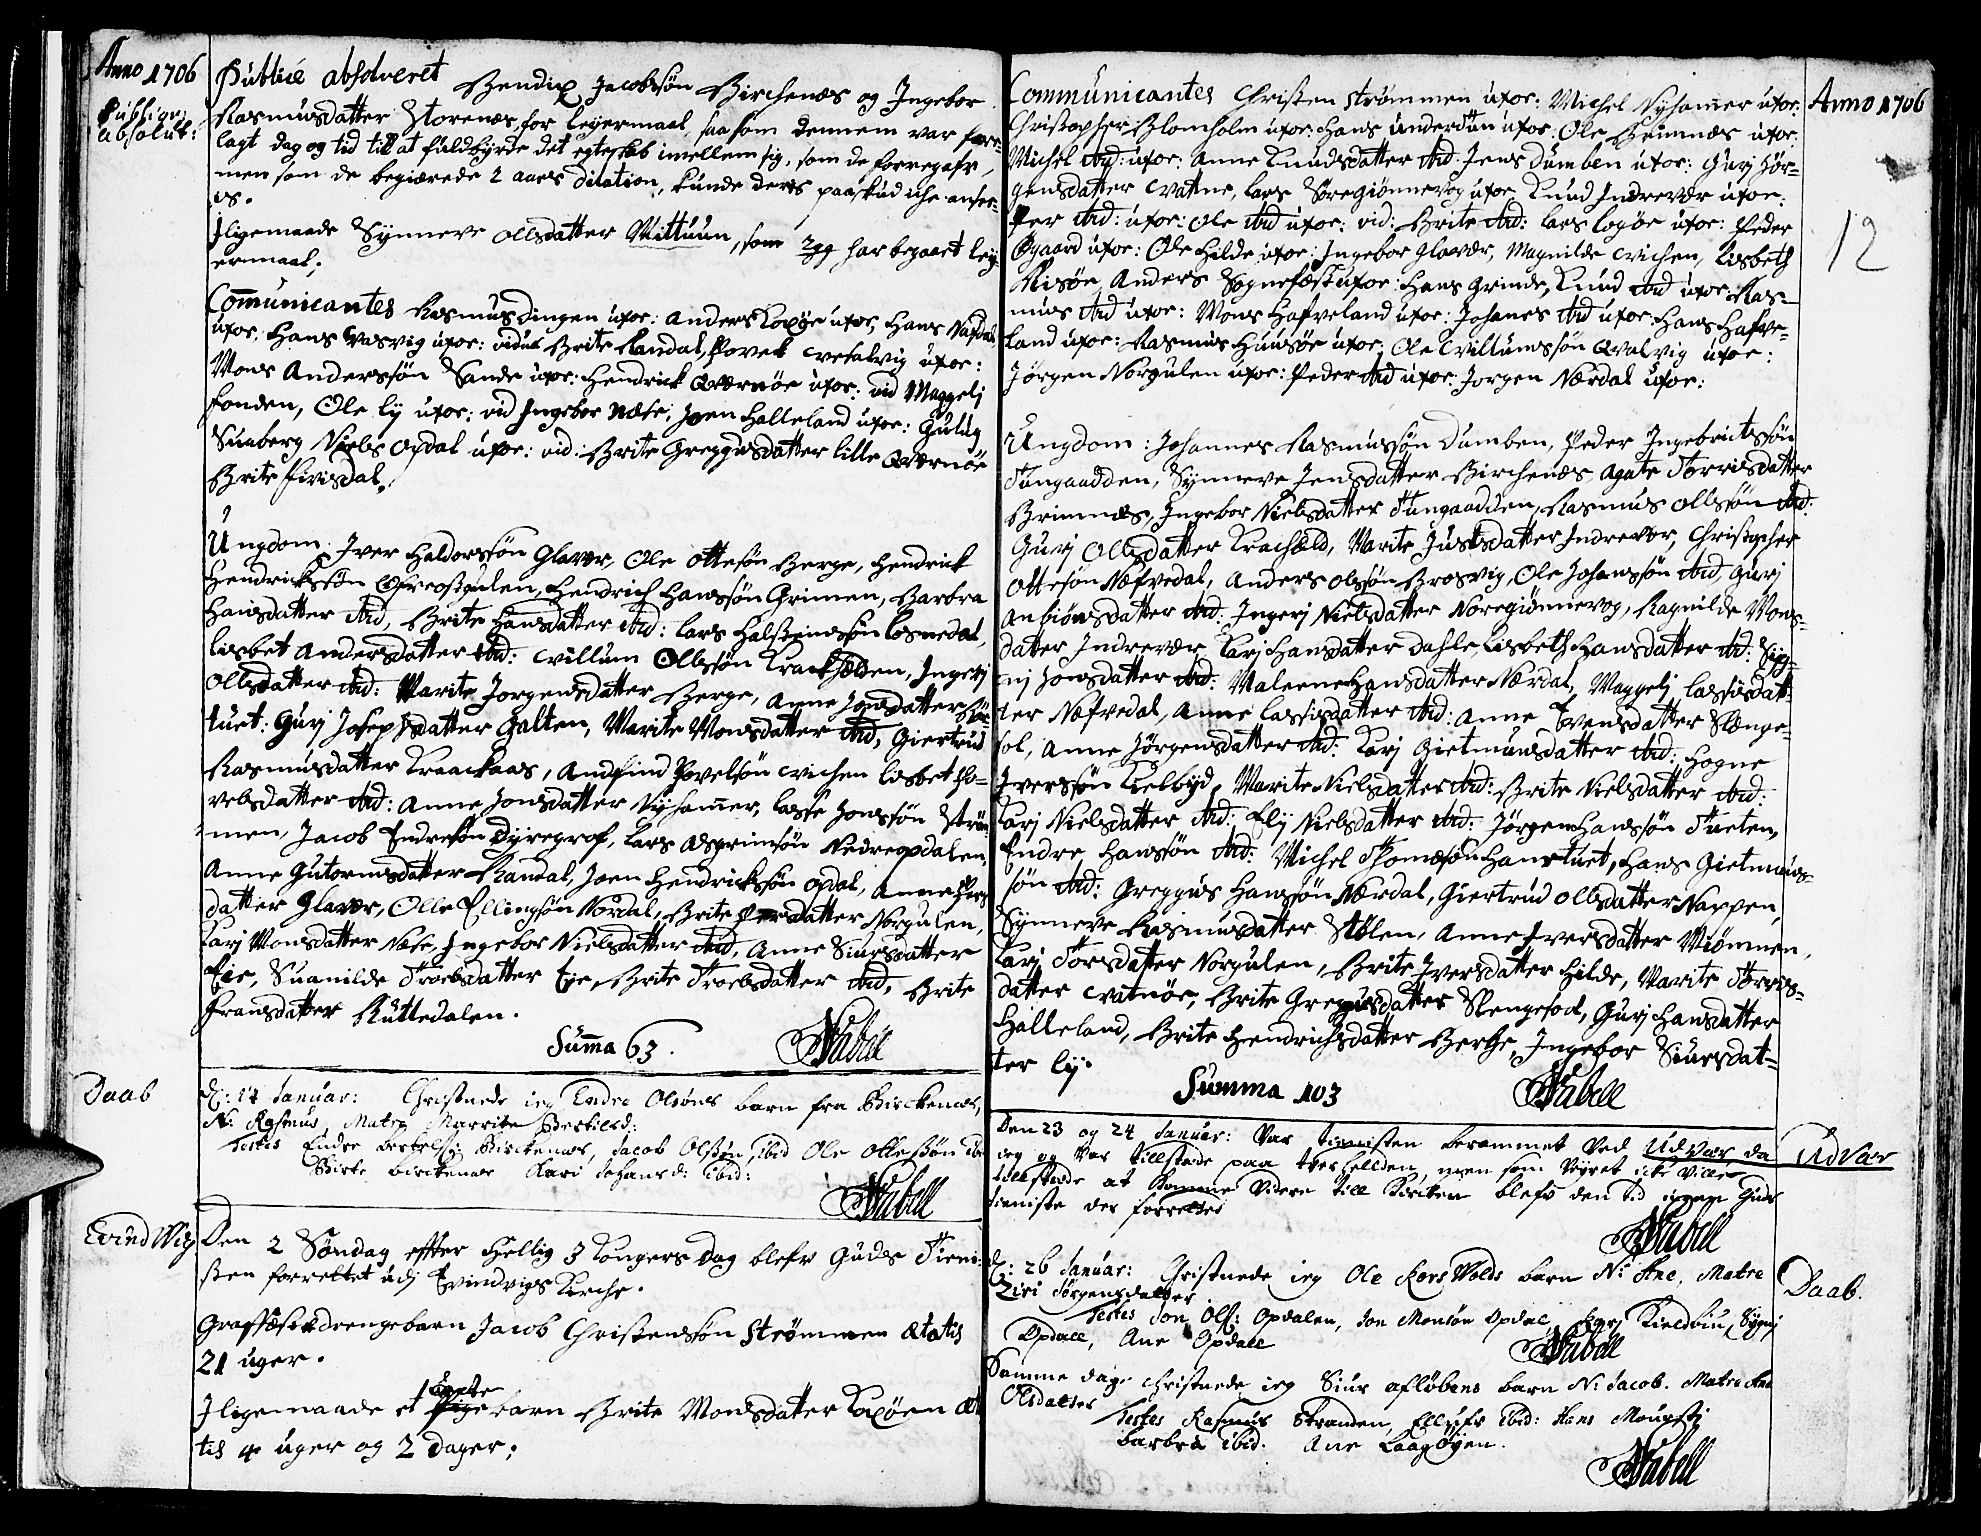 Anno 1706
Publicè absolveret Bendix Jacobsøn Birchenæs og Ingebor
Publicæ
absolut:
Rasmusdatter Storenæs, for leyermaal, saasom dennem var fore-
lagt dag og tid till at fuldbyrde det egteskab imellem sig, som de forregafv,
men som de begiærede 2 aars dilation, kunde deris paaskud iche anser-
es.
Iligemaade Synneve Ollsdatter Mittuun, som 2gg har begaaet ley-
ermaal;
Communicantes Rasmus dingen uxor: Anders Koxøe uxor, Hans
uxor: Hans Vasvig uxor: vidue Brite Randal, Povel uxor:
Mons Andersøn Sande uxor: Hendrick Qværnøe uxor: vid Maggeli
fonden, Ole lÿ uxor: vid Ingebor Næse; Joen Halleland uxor: Gulug
Suaberg Niels Opdal uxor: vid: Brite Greggusdatter lille Qværnøe
Brite Firisdal.
Ungdom: Iver Haldorssøn Glavær, Ole Ottesøn Berge, Hendrick
Hendrickssøn Øfreostgulen, Hendrich Hanssøn Grinnen, Barbra
Hansdatter ibid, Brite Hansdatter ibid: Lars Halsteinssøn losnedal,
lisbet Andersdatter ibid: Villum Ollssøn Krackhelden, Ingerj
Ollsdatter ibid: Marite Jorgensdatter Berge, Anne Jonsdatter
tuet: Gurj Josephsdatter Galten, Marite Monsdatter ibid, Giertrud
Rasmusdatter Kraackaas, Andfind Povelsøn Vichen lisbet Po-
velsdatter ibid: Anne Jonsdatter Nyhamer, lasse Jonssøn Strøm-
men, Jacob Endresøn Dyregrof, Lars Asgrimsøn Nedreopdalen,
Anne Gutormsdatter Randal, Joen Hendrickssøn Opdal, Anne
datter Glavær, Olle Ellingsøn Nordal, Brite Persdatter Norgulen,
Karj Monsdatter Næse, Ingebor Nielsdatter ibid, Anne Siursdatter
Eie, Suanilde Troelsdatter Eje, Brite Troelsdatter ibid, Brite
Fransdatter Ruttedalen.
Sum̄a 63. Nabell
Daab
d: 17 Januar: Christnede ieg Endre Olsøns barn fra Birckenæs,
N: Rasmus, Matre Marrite Bertilsd:
Testes Endre Bertels: Birckenæs, Jacob Olssøn ibid Ole Ollessøn ibd
Birte birckenæs Kari Johansd: ibid:
Nabell
Evindwig
Den 2 Søndag effter Hellig 3 Kongers dag blefv Guds Tieni-
sten forrettet udj Evindvigs Kirche.
Graffæstet drengebarn Jacob Christenssøn Strømmen Ætatis
21 uger.
Iligemaade et Egte barn Brite Monsdatter Koxøen Æta
tis 4 uger og 2 dager;
Communicantes Christen Strømmen uxor: Michel Nyhamer uxor:
Anno 1706
Christopher Blomholm uxor: Hans underdun uxor. Ole Brimnæs uxor.
Michel ibid: uxor: Anne Knudsdatter ibid. Jens Dumben uxor: Gurj Jør-
gensdatter Vattne, Lars Søregiønnevog uxor Knud Indrevær uxor.
Per ibid: uxor: Ole ibid uxor: vid: Brite ibid: Lars logøe uxor: Peder
Øgaard uxor: Ole Hilde uxor: Ingebor Glavær, Magnilde Vichen, Lisbeth
Risøn, Anders Sognefæst uxor: Hans Grinde, Knud ibid uxor: Ras-
mus ibid uxor: Mons Hafveland uxor: Johanes ibid uxor: Hans Hafve-
land uxor: Rasmus Huusøe uxor: Ole Villumssøn Qvalvig uxor:
Jørgen Norgulen uxor: Peder ibid uxor: Jorgen Nordal uxor:
12
Ungdom: Johannes Rasmussøn Dumben, Peder Ingebrictssøn
Tungaadden, Synneve Jensdatter Birchenæs, Agate Torrisdatter
Brimnæs, Ingebor Nielsdatter Tungaadden, Rasmus Ollsøn ibid.
Gurj Ollsdatter Krachæld, Marite Justsdatter Indrevær, Christopher
Ottesøn Næfvedal, Anders Olsøn Brosvig, Ole Johanssøn ibid, Gurj
Anbiønsdatter ibid: Ingerj Nielsdatter Noregiønnevog, Ragnilde Mons-
datter Indrevær, Karj Hansdatter Dahle, Lisbeth Hansdatter ibid: Sig-
nj Jonsdatter ibid: Maleene Hansdatter Nordal, Maggelj Lassisdat-
ter Næfvedal, Anne Lassisdatter ibid: Anne Evensdatter Slænge-
sol, Anne Jørgensdatter ibid: Karj Gietmunsdatter ibid: Hogne
Iverssøn Kielbyd, Marite Nielsdatter ibid: Brite Nielsdatter ibid:
Karj Nielsdatter ibid: Elj Nielsdatter ibid: Jørgen Hanssøn Tueten,
Endre Hanssøn ibid: Michel Thomæsøn Hanstuet, Hans Gietmuns-
søn ibid: Greggus Hanssøn Nordal, Giertrud Ollsdatter Nappen,
Synneve Rasmusdatter Stølen, Anne Iversdatter Miømnen,
Karj Torsdatter Norgulen, Brite Iversdatter Hilde, Marite Torris-
datter Vatnøe, Brite Gregusdatter Slengesol, Gurj Hansdatter
Halleland, Brite Hendrichsdatter Berge, Ingebor Siursdat-
ter lÿ.
Summa 103 Nabell
Den 23 og 24 Januar: Var tienisten berammet Ved Udvær da
Udvær
ieg og Var tillstæde paa Ytrehellden, men som Veyret icke Ville
tilstæde at komme Videre till Kircken blefv den tid ingen Guds
tieniste der forrettet
Nabell
d: 26 Januar: Christnede ieg Ole KorsWolds barn N: Ane, Matre
Daab.
Ziri Jørgensdatter
Testes Jon Ols: Opdalen, Jon Monsøn Opdal, Karj Kieldviu, Signj
Opdall, Ane Opdall
Nabell
Samme dage Christnede ieg Siur afløbens barn N: Jacob. Matre Ane
Olsdatter
Testes Rasmus Stranden, Ellufv ibid: Hans
barbra ibid. Ane Laagøyen.
Nabell